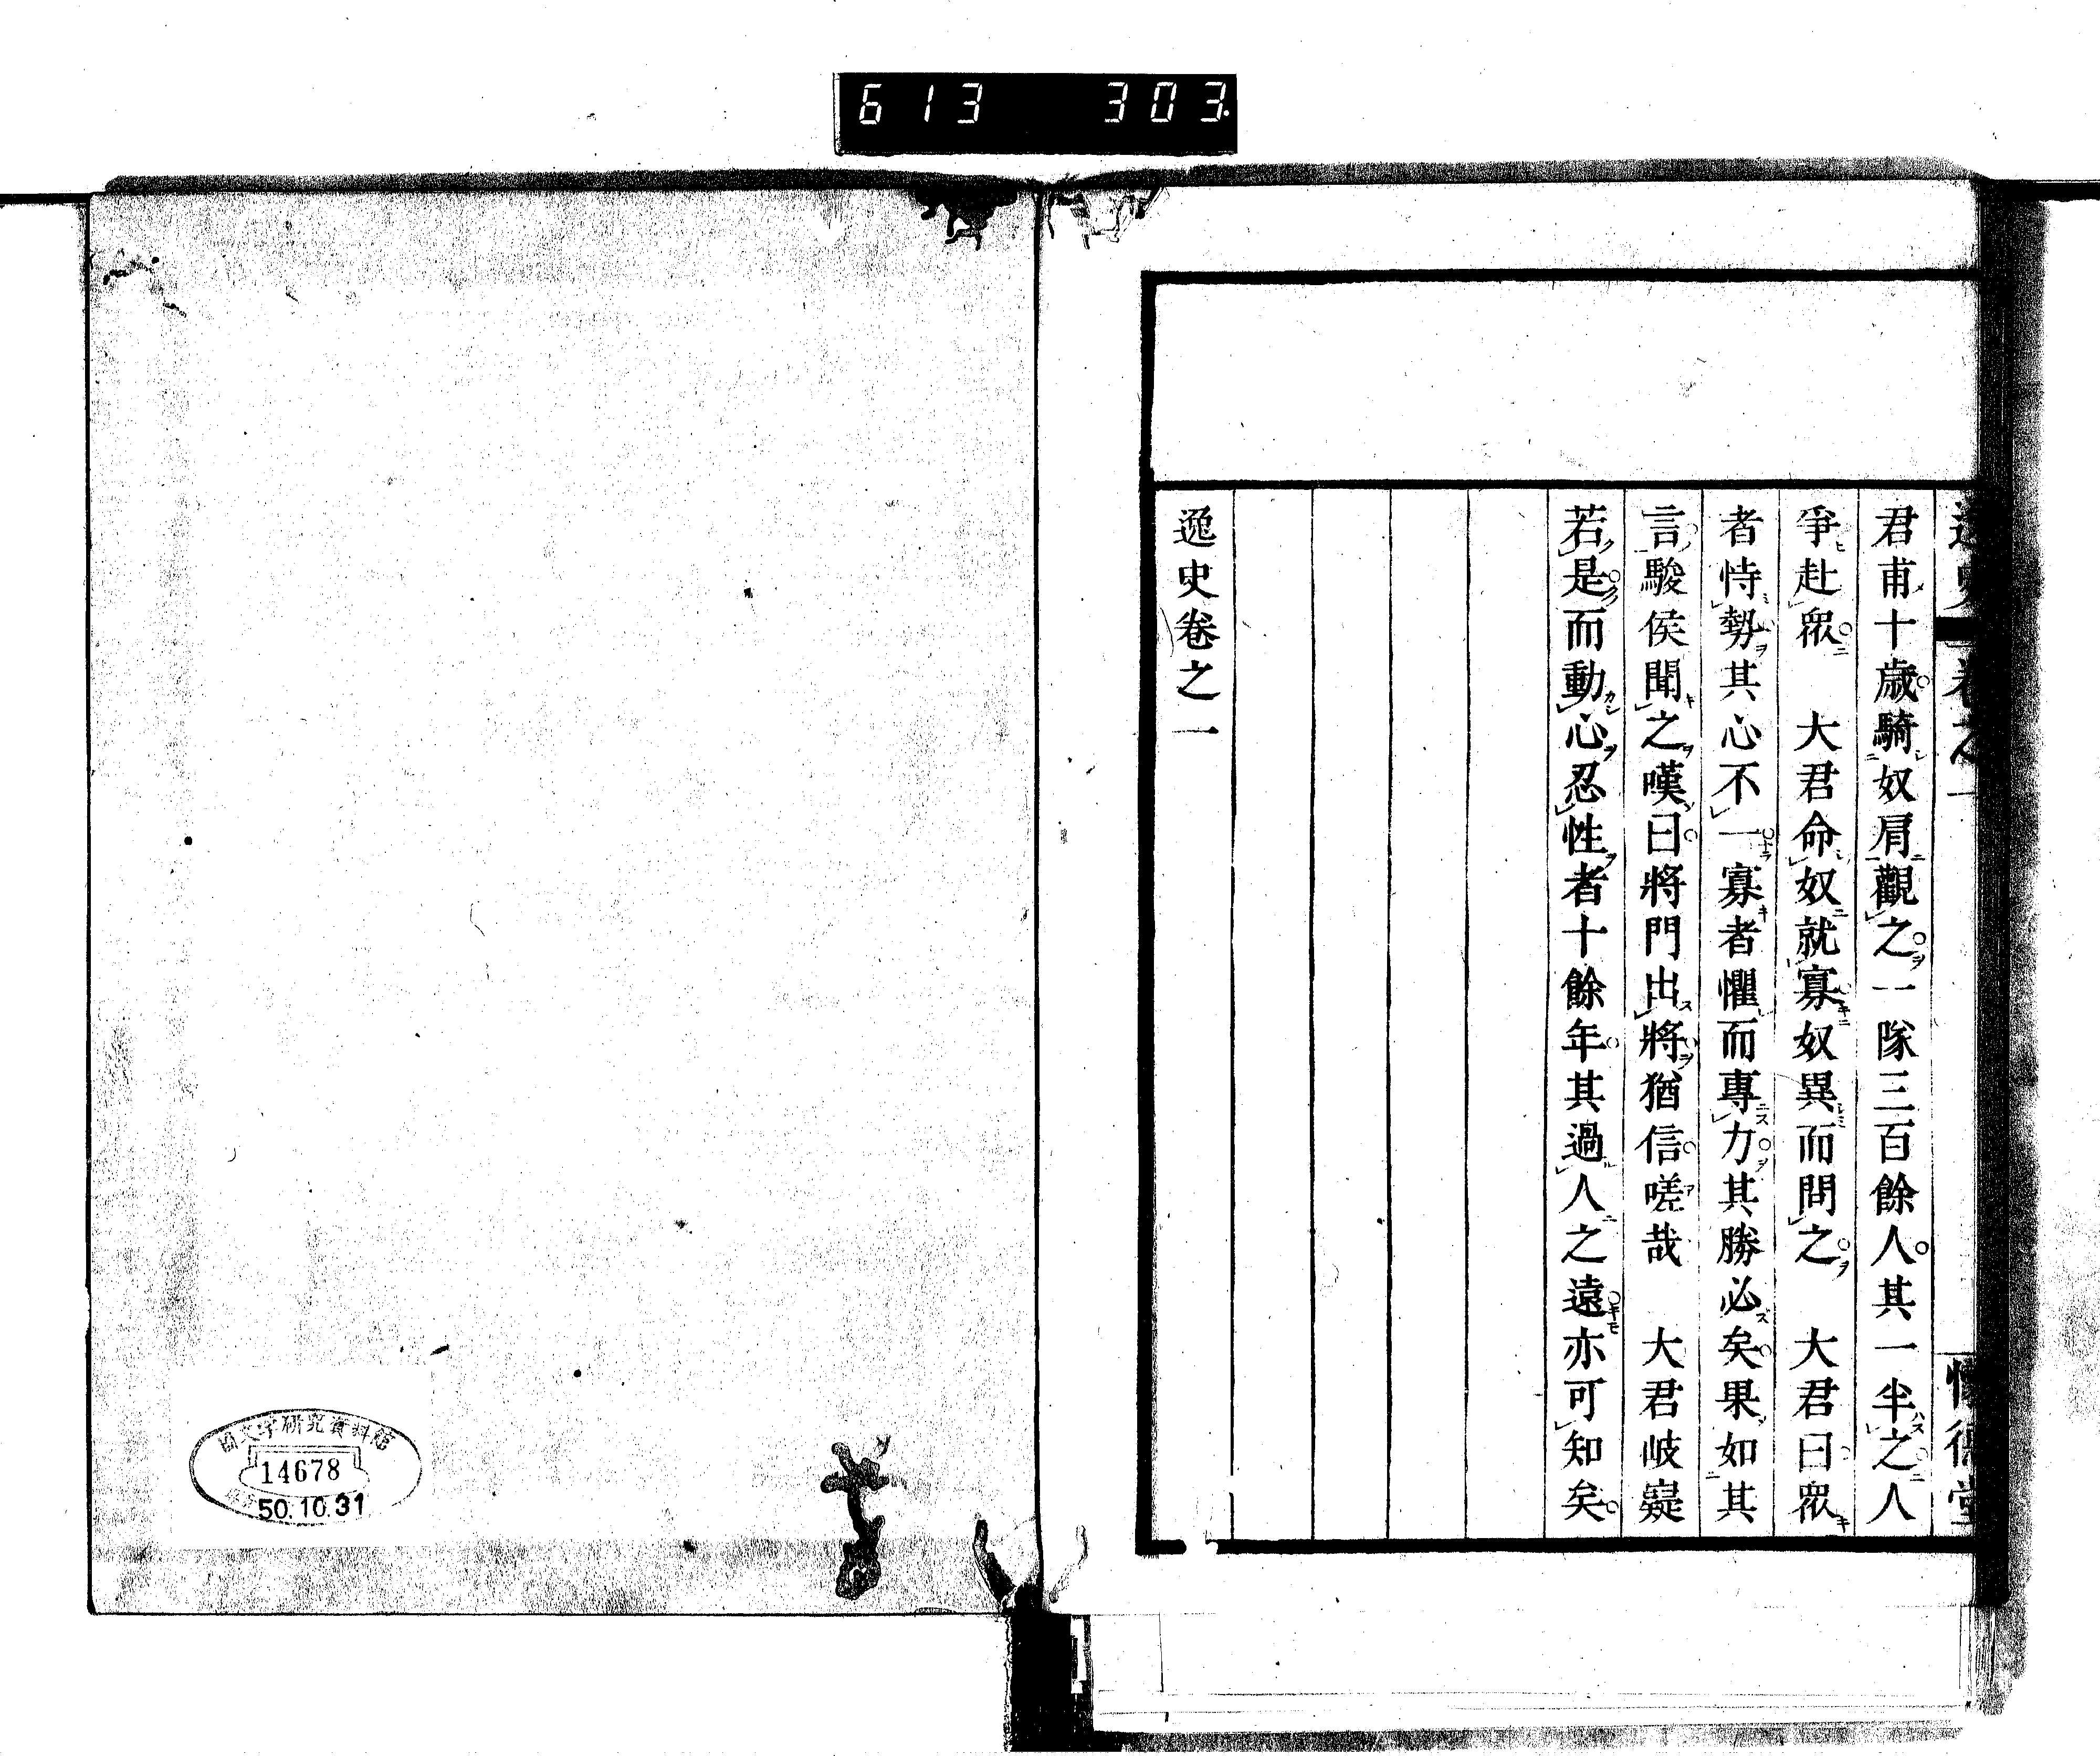 613 303
君甫十歳騎奴肩觀之一隊三百餘人其一半之人
爭赴衆　大君命奴就寡奴異而問之　大君曰衆
者恃勢其心不一寡者懼而專力其勝必矣果如其
言駿侯聞之嘆曰將門出將猶信嗟哉　大君岐嶷
若是而動心忍性者十餘年其過人之遠亦可知矣
逸史卷之一
國文学研究資料館
14678
50.10.31